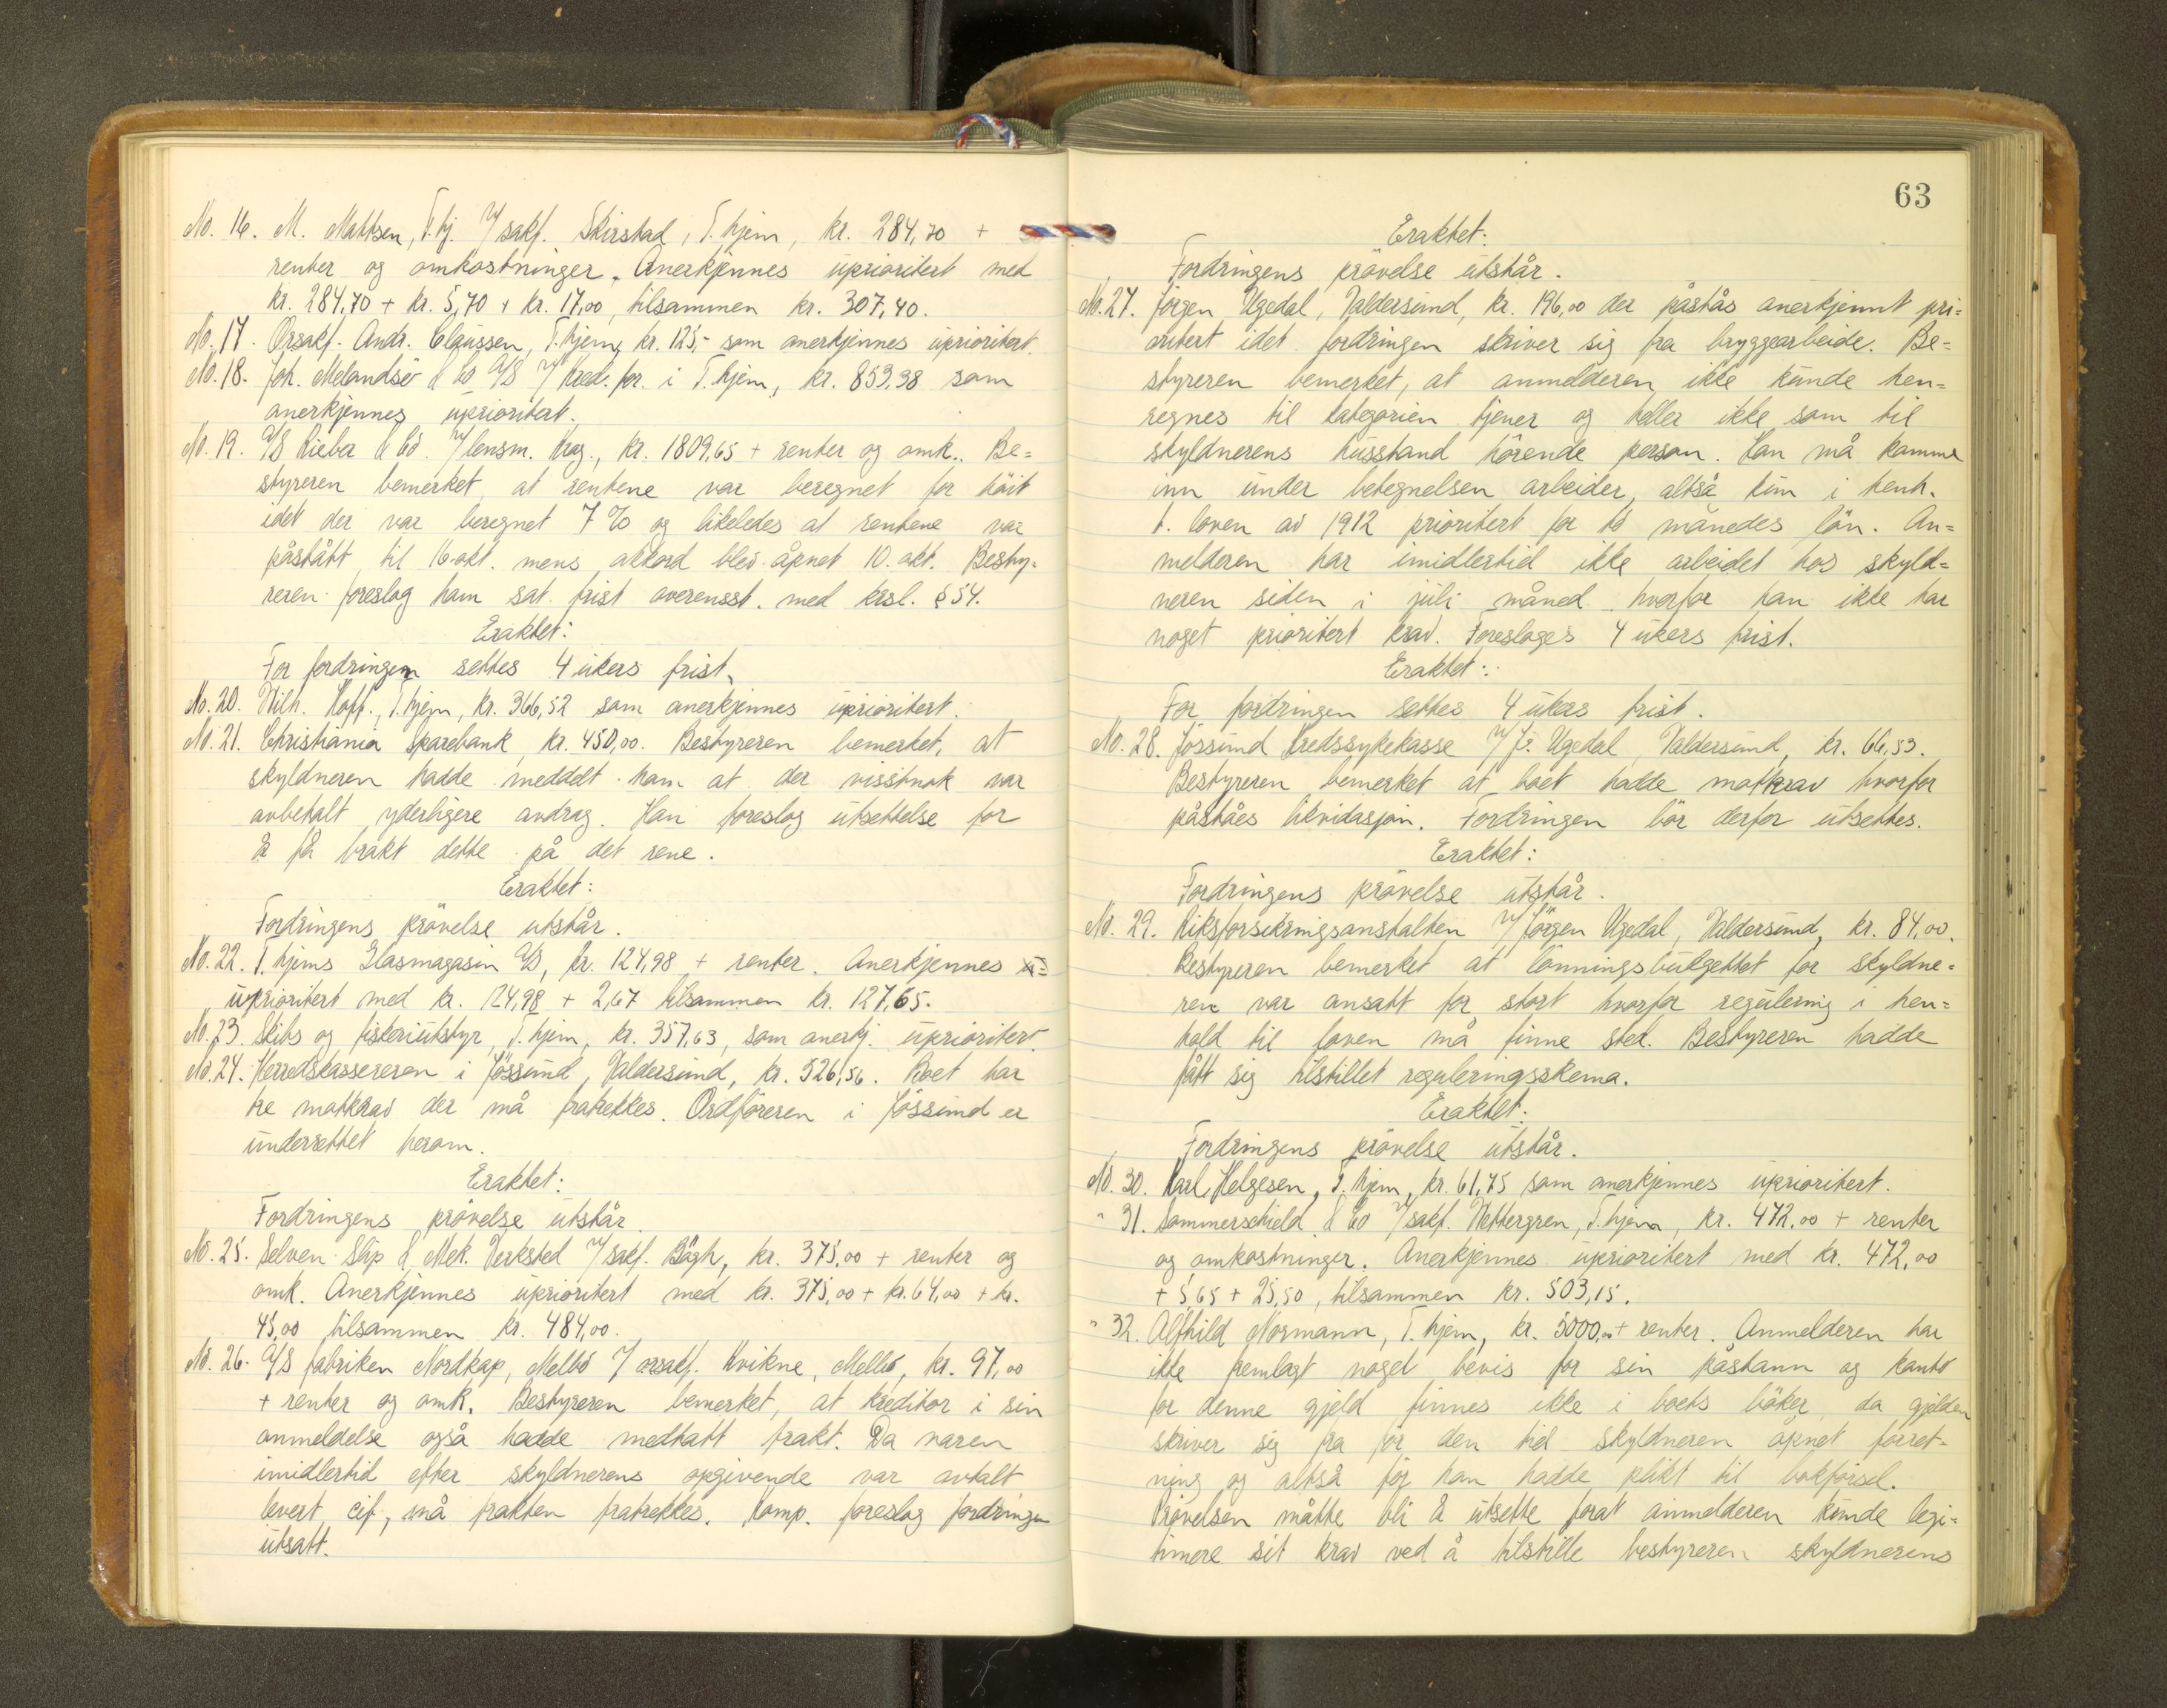 No. 16. M. Mattsen, T.hj. v/ sakf. Skirstad, T.hjem, kr. 284,70 +
renter og omkostninger. Anerkjennes uprioritert med
kr. 284,70 + kr. 5,70 + kr. 17,00, tilsammen kr. 307,40.
No. 17. Orsakf. Andr. Claussen, T.hjem, kr. 125,- som anerkjennes uprioritert.
No. 18. Joh. Melandsö & Co A/S v/ Kred. for. i T.hjem, kr. 853.98 som
anerkjennes uprioritert.
No. 19. A/S Rieber & Co. v/ lensm. Krog., kr. 1809,65 + renter og omk.. Be=
styreren bemerket at rentene var beregnet for höit
idet der var beregnet 7% og likeledes at rentene var
påstått til 16 okt. mens akkord blev åpnet 10. okt. Besty-
reren foreslog ham sat frist overensst. med krsl. § 54.
Eraktet:
For fordringen settes 4 ukers frist.
No. 20. Wilh. Hoff., T.hjem, kr. 366,52 som anerkjennes uprioritert.
No. 21. Christiania Sparebank, kr. 450,00. Bestyreren bemerket, at
skyldneren hadde meddelt ham at der visstnok var
avbetalt yderligere avdrag. Han foreslog utsettelse for
å få brakt dette på det rene.
Eraktet:
Fordringens prövelse utstår.
No. 22. T.hjems Glasmagasin A/S, kr. 124,98 + renter. Anerkjennes
uprioritert med kr. 124,98 + 2,67 tilsammen kr. 127,65.
No. 23. Skibs og fiskeriutstyr, T.hjem, kr. 357,63, som anerkj. uprioritert.
No. 24. Herredskassereren i Jössund, Valdersund, kr. 526,56. Boet har
tre motkrav der må fratrekkes. Ordföreren i Jössund er
underrettet herom.
Eraktet:
Fordringens prövelse utstår.
No. 25. Selven Slip & Mek. Verksted v/ sakf. Bögh, kr. 375,00 + renter og
omk. Anerkjennes uprioritert med kr. 375,00 + kr. 64,00 + kr.
45,00 tilsammen kr. 484,00.
No. 26. A/S fabriken Nordkap, Melbö v/ orsakf. Kvikne, Melbö, kr. 97,00
+ renter og omk. Bestyreren bemerket, at kreditor i sin
anmeldelse også hadde medtatt frakt. Da varen
imidlertid efter skyldnerens opgivende var avtalt
levert cif, må frakten fratrekkes. Komp. foreslog fordringen
utsatt.
63
Eraktet:
Fordringens prövelse utstår.
No. 27. Jörgen Ugedal, Valdersund, kr. 196,00 der påstås anerkjennt pri=
oritert idet fordringen skriver sig fra bryggearbeide. Be=
styreren bemerket, at anmelderen ikke kunde hen=
regnes til kategorien tjener og heller ikke som til
skyldnerens husstand hörende person. Han må komme
inn under betegnelsen arbeider, altså kun i henh.
t. loven av 1912 prioritert for to måneders lön. An=
melderen har imidlertid ikke arbeidet hos skyld=
neren siden i juli måned hvorfor han ikke har
noget prioritert krav. Foreslages 4 ukers frist.
Eraktet:
For fordringen settes 4 ukers frist.
No. 28. Jössund Kredssykekasse v/ Jr. Ugedal, Valdersund, kr. 66,53.
Bestyreren bemerket at boet hadde motkrav hvorfor
påståes likvidasjon. Fordringen bör derfor utsettes.
Eraktet:
Fordringens prövelse utstår.
No. 29. Riksforsikringsanstalten v/ Jörgen Ugedal, Valdersund, kr. 84,00.
Bestyreren bemerket at lönningsbudgettet for skyldne=
ren var ansatt for stort hvorfor regulering i hen=
hold til loven må finne sted. Bestyreren hadde
fått sig tilstillet reguleringsskema.
Eraktet:
Fordringens prövelse utstår.
No. 30. Karl Helgesen, T.hjem, kr. 61,75 som anerkjennes uprioritert.
" 31. Sommerschield & Co v/ sakf. Wettergren, T.hjem, kr. 472,00 + renter
og omkostninger. Anerkjennes uprioritert med kr. 472,00
+ 5,65 + 25,50, tilsammen kr. 503,15.
" 32. Alfhild Normann, T.hjem, kr. 5000,00 + renter. Anmelderen har
ikke fremlagt noget bevis for sin påstann og konto
for denne gjeld finnes ikke i boets böker, da gjelden
skriver sig fra för den tid skyldneren åpnet forret-
ning og altså för han hadde plikt til bokförsel.
Prövelsen måtte bli å utsette forat anmelderen kunde legi=
timere sit krav ved å tilstille bestyreren skyldnerens